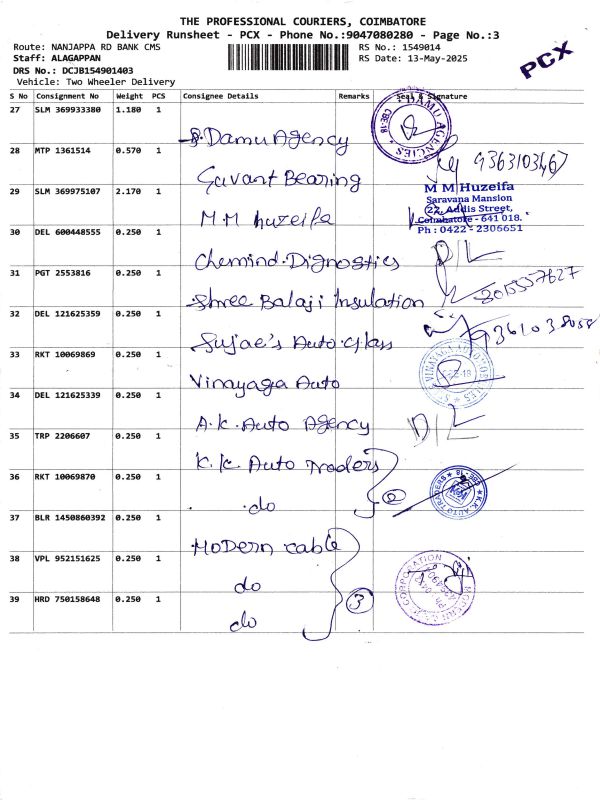 THE PROFESSIONAL COURIERS, COIMBATORE
Delivery Runsheet - PCX - Phone No.:9047080280 - Page No.:3
Route: NANJAPPA RD BANK CMS
RS No.: 1549014
Staff: ALAGAPPAN
RS Date: 13-May-2025
DRS No.: DCJB154901403
Vehicle: Two Wheeler Delivery
PCX
S No Consignment No Weight PCS Consignee Details Remarks Seal & Signature
27 SLM 369933380 1.180 1
Damu Agency
DAMU AGENCIES CBE-18
28 MTP 1361514 0.570 1
Savant Bearing
9363103467
29 SLM 369975107 2.170 1
M M Huzeifa
M M Huzeifa
Saravana Mansion
22, Addis Street,
Coimbatore - 641 018.
Ph : 0422 - 2306651
30 DEL 600448555 0.250 1
Chemind. Dignostics
D/L
31 PGT 2553816 0.250 1
Shree Balaji Insulation
8015557627
32 DEL 121625359 0.250 1
Sujae's Auto Glass
33 RKT 10069869 0.250 1
Vinayaga Auto
34 DEL 121625339 0.250 1
A.K. Auto Agency
D/L
35 TRP 2206607 0.250 1
K.K. Auto Traders
36 RKT 10069870 0.250 1
do
2
K.K. AUTO TRADERS CBE-18
37 BLR 1450860392 0.250 1
Modern cable
38 VPL 952151625 0.250 1
do
39 HRD 750158648 0.250 1
do
3